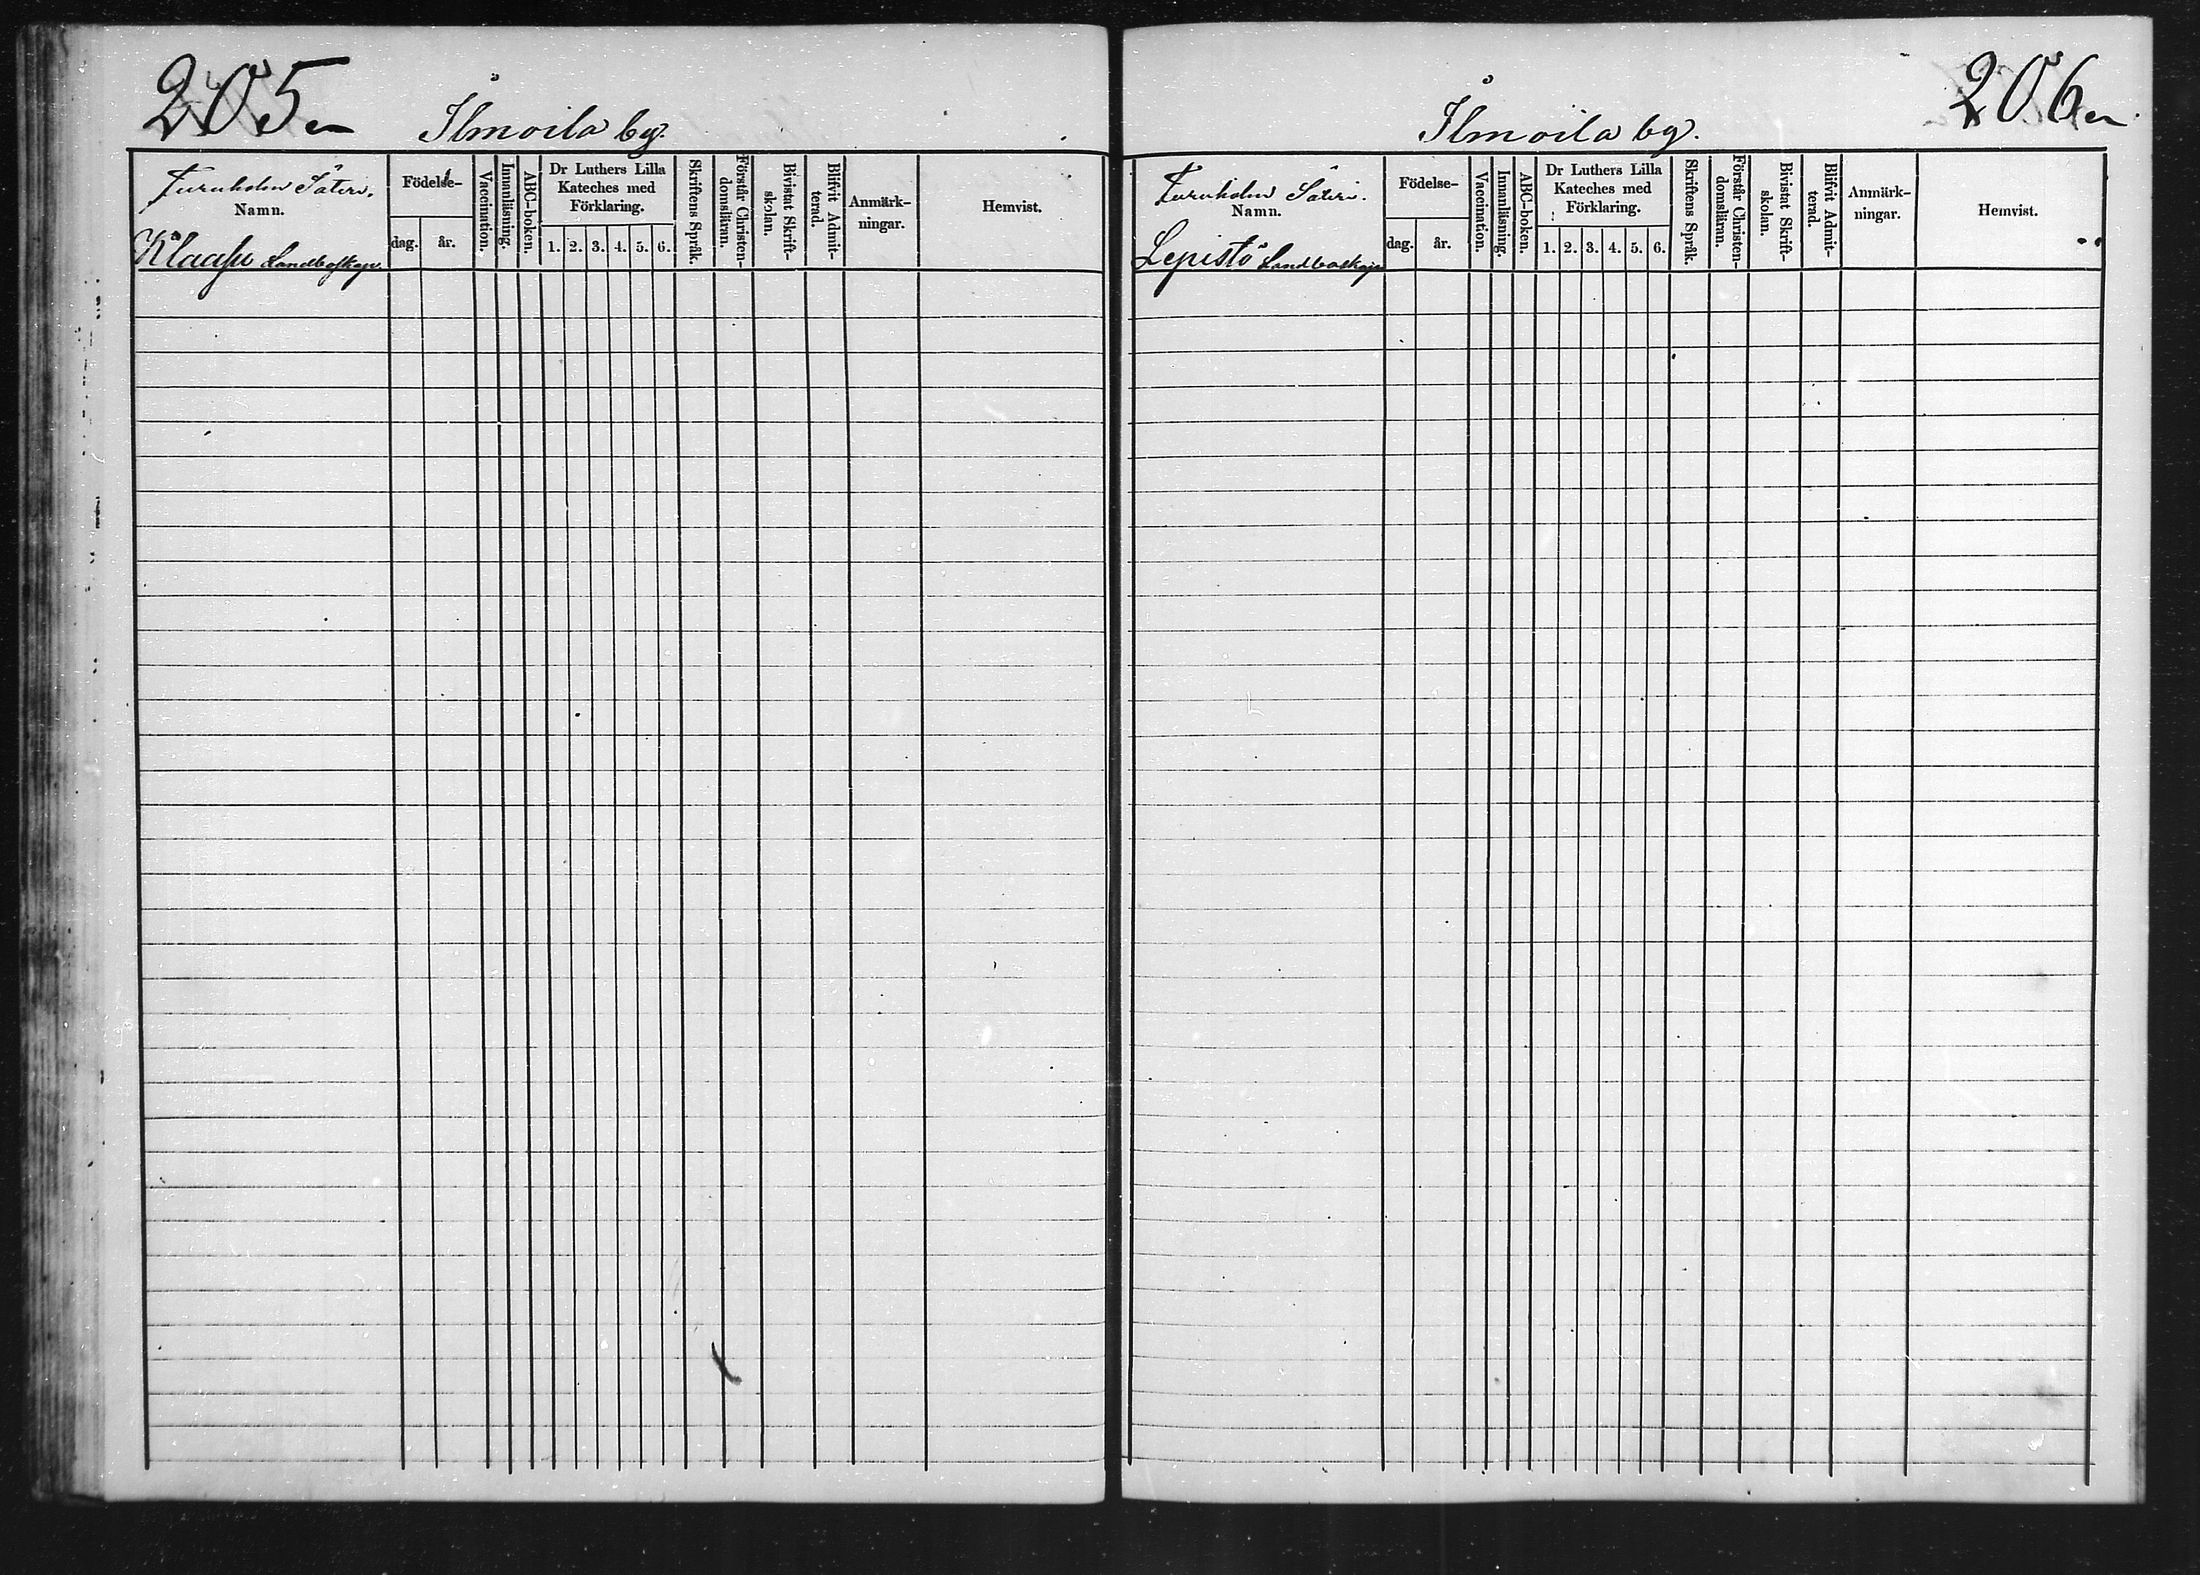 205
Ilmoila by.
Furuholm Säteri.
Namn.
Födelse-
dag. år.
Vaccination.
Innanläsning.
ABC-boken.
Dr Luthers Lilla
Kateches med
Förklaring.
1. 2. 3. 4. 5. 6.
Skriftens Språk.
Förstår Christen-
domsläran.
Bivistat Skrift-
skolan.
Blifvit Admit-
terad.
Anmärk-
ningar.
Hemvist.
Landboskap
206
Ilmoila by.
Furuholm Säteri.
Namn.
Födelse-
dag. år.
Vaccination.
Innanläsning.
ABC-boken.
Dr Luthers Lilla
Kateches med
Förklaring.
1. 2. 3. 4. 5. 6.
Skriftens Språk.
Förstår Christen-
domsläran.
Bivistat Skrift-
skolan.
Blifvit Admit-
terad.
Anmärk-
ningar.
Hemvist.
Lepistö Landboskap